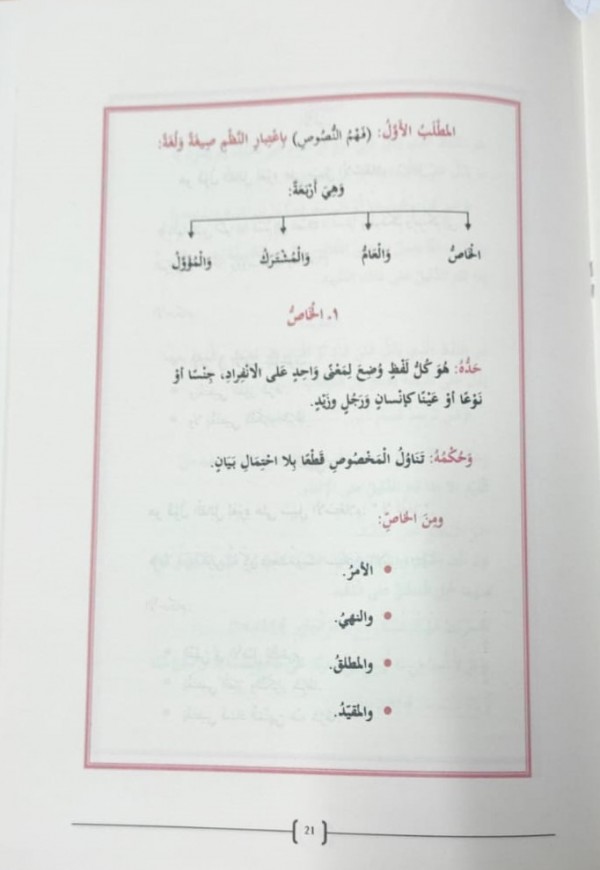 المَطْلَبُ الأَوَّلُ: (فَهْمُ النُّصُوصِ) بِاعْتِبَارِ النَّظْمِ صِيغَةً وَلُغَةً:
وَهِيَ أَرْبَعَةٌ:
الْخَاصُّ وَالْعَامُّ وَالْمُشْتَرَكُ وَالْمُؤَوَّلُ
١. الْخَاصُّ
حَدُّهُ: هُوَ كُلُّ لَفْظٍ وُضِعَ لِمَعْنًى وَاحِدٍ عَلَى الْانْفِرَادِ، جِنْسًا أَوْ
نَوْعًا أَوْ عَيْنًا كإِنْسَانٍ وَرَجُلٍ وزَيْدٍ.
وَحُكْمُهُ: تَنَاوُلُ الْمَخْصُوصِ قَطْعًا بِلا احْتِمَالِ بَيَانٍ.
ومِنَ الخَاصِّ:
• الأمرُ.
• والنهيُ.
• والمطلقُ.
• والمقيّدُ.
21